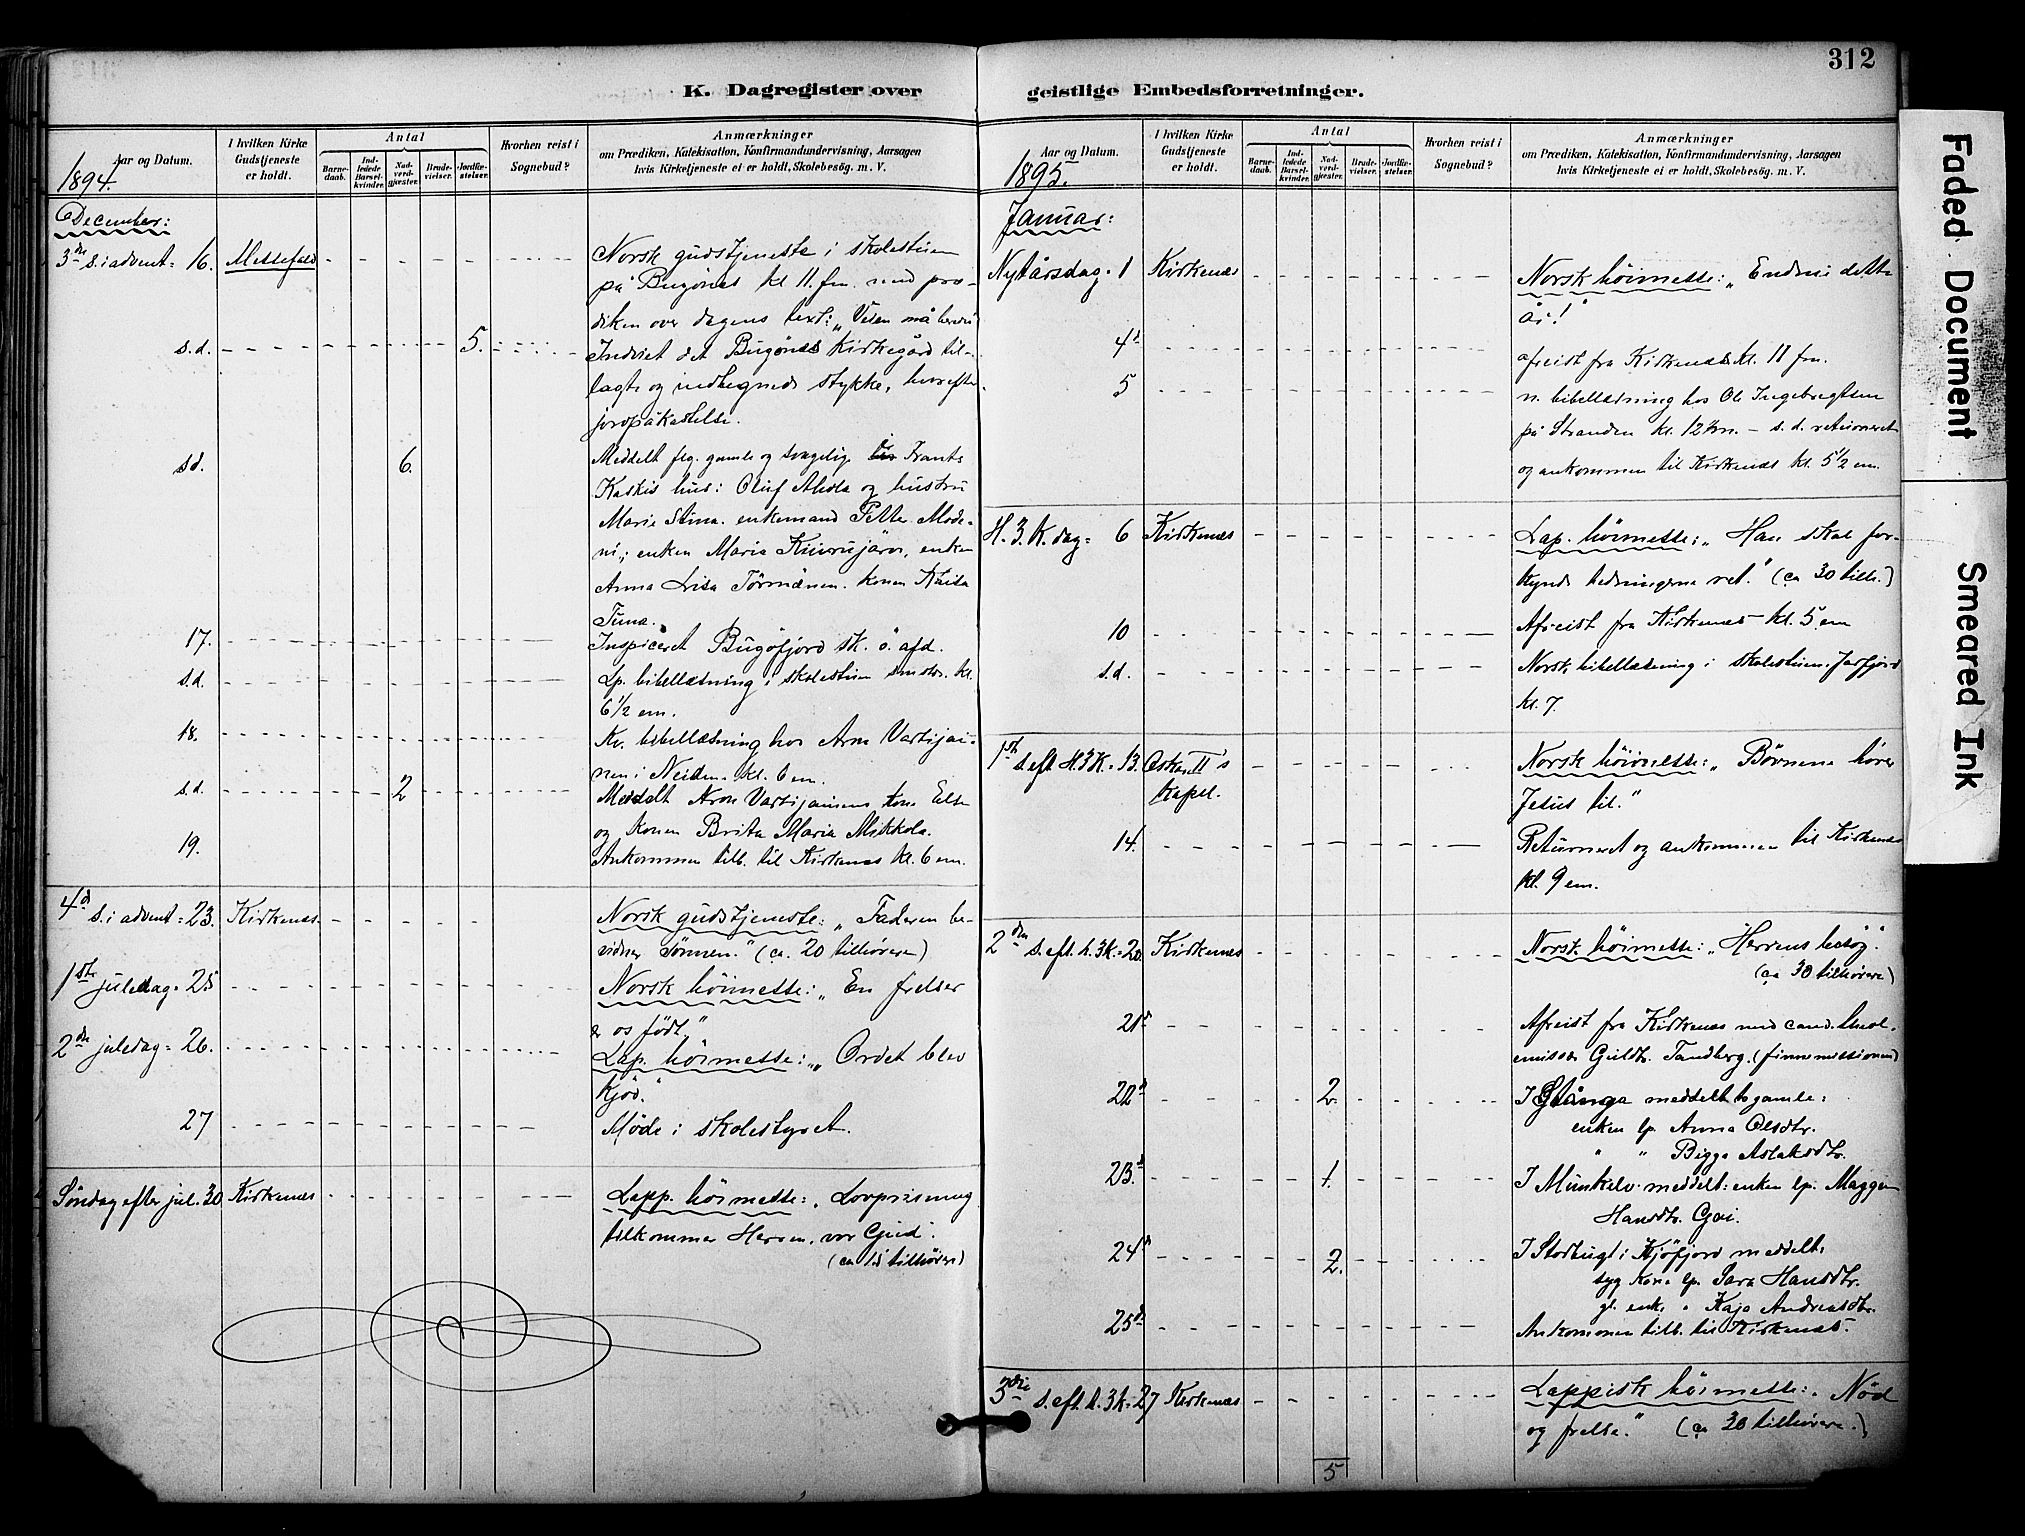 312
K. Dagregister over
Aar og Datum.
1894.
I hvilken Kirke Gudstjeneste er holdt.
Antal
Barne-daab.
Ind-ledede Barsel-kvinder.
Nad-verd-gjester.
Brude-vielser.
Jordfæ-stelser.
Hvorhen reist i Sognebud?
Anmærkninger
om Prædiken, Katekisation, Konfirmandundervisning, Aarsagen
hvis Kirketjeneste ei er holdt, Skolebesög. m. V.
December:
3die s. i advent = 16. Messefald
Norsk gudstjeneste i skolestuen
på Bugönes kl 11. fm. med præ-
diken over dagens text: „Veien må
s.d. 5. Indviet det Bugönes Kirkegård til-
lagte og indhegnede stykke, hvorefter
jordpåkastelse.
sd. 6. Meddelt flg. gamle og svagelige Frants
Kaskis hus: Oluf Ahola og hustru
Maria Stina. enkemand Petter
enken Maria enken
Anna Lisa Törmänen. konen Kaisa
17. Inspiceret Bugöfjord sk. ö. afd.
s.d. Lp. bibellæsning i skolestuen smstds. kl.
6 1/2 em.
18. Kv. bibellæsning hos Aron Vartijai-
nen i Neiden. kl. 6 em.
s.d. 2 Meddelt Aron Vartijainens
og konen Brita Maria Mikkola.
19. Ankommen tilb. til Kirkenes kl. 6 em.
4d s. i advent = 23. Kirkenæs. Norsk gudstjeneste: „Faderen be-
vidner Sönnen." (ca. 20 tilhörere)
1ste juledag = 25 Norsk höimesse: „En frelser
er os födt."
2den juledag = 26. Lap. höimesse: „Ordet blev
kjöd."
27 Möde i skolestyret.
Söndag efter jul. 30 Kirkenæs Lapp. höimesse: „Lovprisning
tilkommer Herren, vor Gud."
(ca 15 tilhörere)
geistlige Embedsforretninger.
Aar og Datum.
1895.
I hvilken Kirke Gudstjeneste er holdt.
Antal
Barne-daab.
Ind-ledede Barsel-kvinder.
Nad-verd-gjester.
Brude-vielser.
Jordfæ-stelser.
Hvorhen reist i Sognebud?
Anmærkninger
om Prædiken, Katekisation, Konfirmandundervisning, Aarsagen
hvis Kirketjeneste ei er holdt, Skolebesög. m. V.
Januar:
Nytårsdag = 1 Kirkenæs Norsk höimesse: „Endnu dette
år!
4d afreist fra Kirkenæs kl. 11 fm.
5 n. bibellæsning hos Ol. Ingebregtsen
på Stranden kl. 12 s.d. returneret
og ankommen til Kirkenæs kl. 5 1/2 em.
H. 3. K. dag = 6 Kirkenæs Lap. höimesse: „Han skal for-
kynde hedningerne ret." (ca 30 tilh.)
10 Afreist fra Kirkenæs kl. 5 em
s.d. Norsk bibellæsning i skolestuen. Jarfjord
kl. 7.
1ste s. eft. H. 3 K. = 13. Oskar II's Kapel. Norsk höimesse: „Börnene hörer
Jesus til."
14. Returneret og ankommen til Kirkenæs
kl. 9 em.
2den s. eft. h. 3 K. = 20. Kirkenæs Norsk höimesse: „Herrens besög".
(ca 30 tilhörere)
21d Afreist fra Kirkenæs med cand. theol.
emissær Guldb. Tandberg. (finnemissionen)
22d 2. I Stånga meddelt gamle:
enken lp. Anna Olsdtr.
" " Bigga Aslaksdtr.
23d 1. I Munkelv meddelt: enken lp. Maggen
Hansdtr.
24d 2. I Storbugt i Kjöfjord meddelt:
syg kone lp. Sara Hansdtr.
gl. enke " Kaja Andreasdtr.
25d Ankommen tilb. til Kirkenæs.
3die s. eft. h. 3 K. = 27 Kirkenæs Lappisk höimesse: „Nöd
og frelse." (ca 30 tilhörere.)
5
Faded Document
Smeared Ink